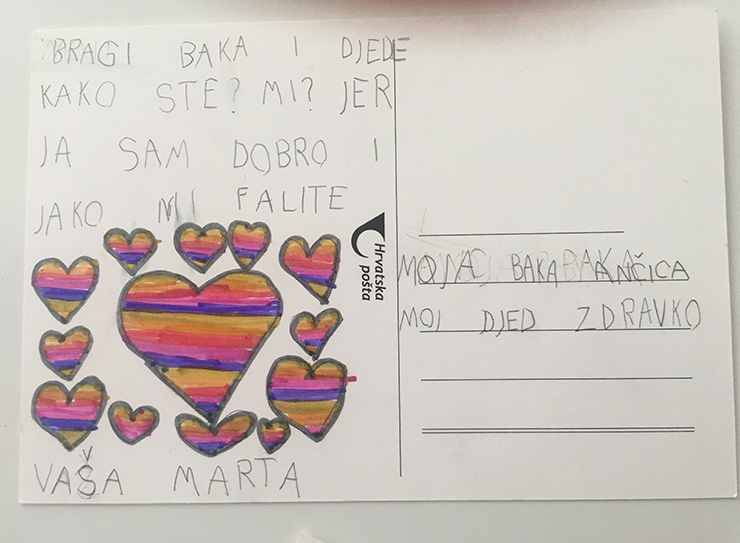 DRAGI BAKA I DJEDE
KAKO STE? MI? JER
JA SAM DOBRO I
JAKO MI FALITE
VAŠA MARTA
Hrvatska
pošta
MOJA BAKA ANČICA
MOJ DJED ZDRAVKO